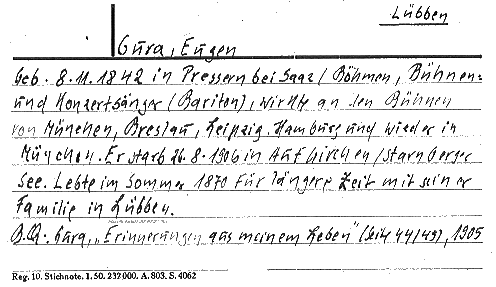 Lübben
Gura, Eugen
Geb. 8.11.1842 in Pressern bei Saaz/Böhmen, Bühnen-
und Konzertsänger (Bariton), wirkte an den Bühnen
von München, Breslau, Leipzig. Hamburg und wieder in
München. Er starb 26.8.1906 in Aufkirchen/Starnberger
See. Lebte im Sommer 1870 für längere Zeit mit seiner
Familie in Lübben.
B.Q. Gura, „Erinnerungen aus meinem Leben" (Seite 44/49), 1905
Reg. 10. Stichnote. 1. 50. 232000. A. 803. S. 4062